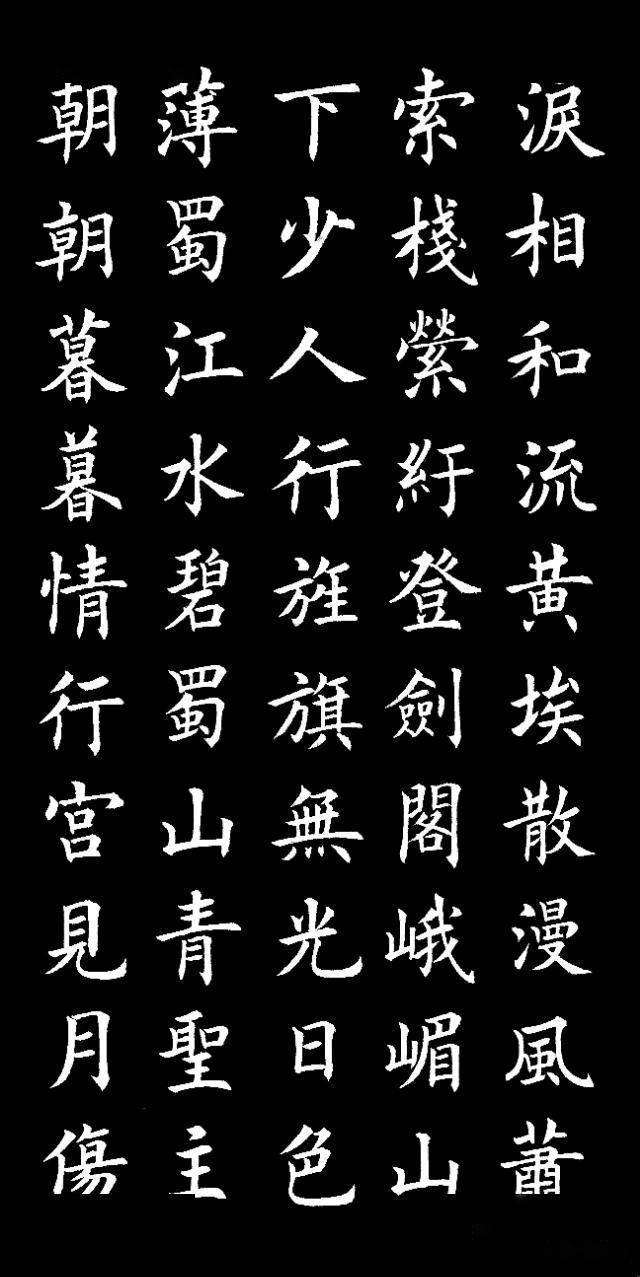 淚相和流黃埃散漫風蕭
索棧縈紆登劍閣峨嵋山
下少人行旌旗無光日色
薄蜀江水碧蜀山青聖主
朝朝暮暮情行宮見月傷